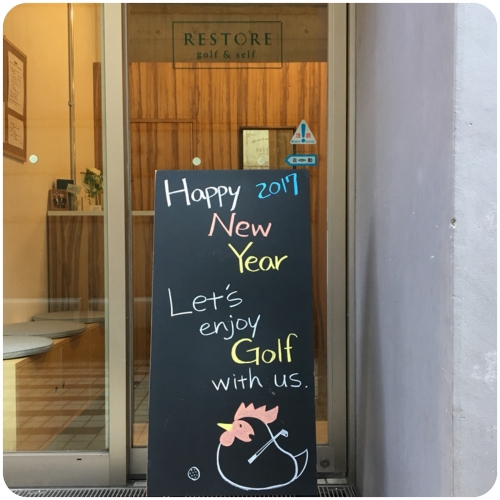 RESTORE
golf & self
Happy 2017
New
Year
Let's
enjoy
Golf
with us.